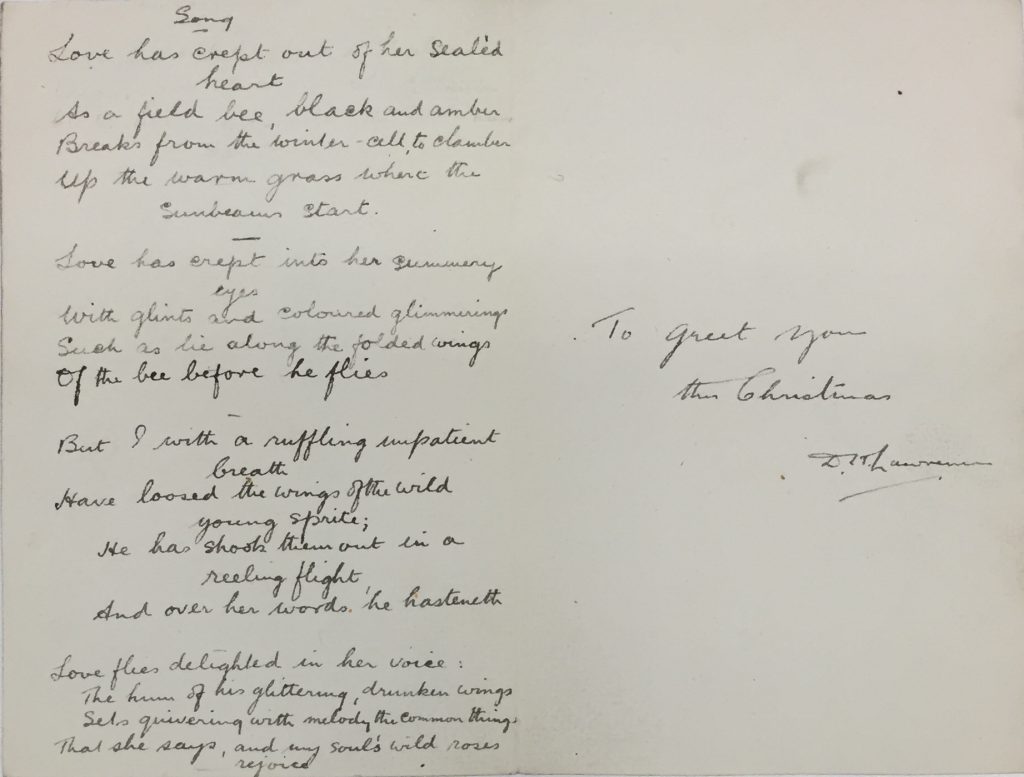 Song
Love has crept out of her sealèd
heart
As a field bee, black and amber
Breaks from the winter-cell, to clamber
Up the warm grass where the
Sunbeams start.
Love has crept into her summery
eyes
With glints and coloured glimmerings
Such as lie along the folded wings
Of the bee before he flies
But I with a ruffling impatient
breath
Have loosed the wings of the wild
young sprite;
He has shook them out in a
reeling flight,
And over her words he hasteneth
Love flies delighted in her voice:
The hum of his glittering, drunken wings
Sets quivering with melody the common things
That she says, and my soul's wild roses
rejoice
To greet you
this Christmas
D.H. Lawrence